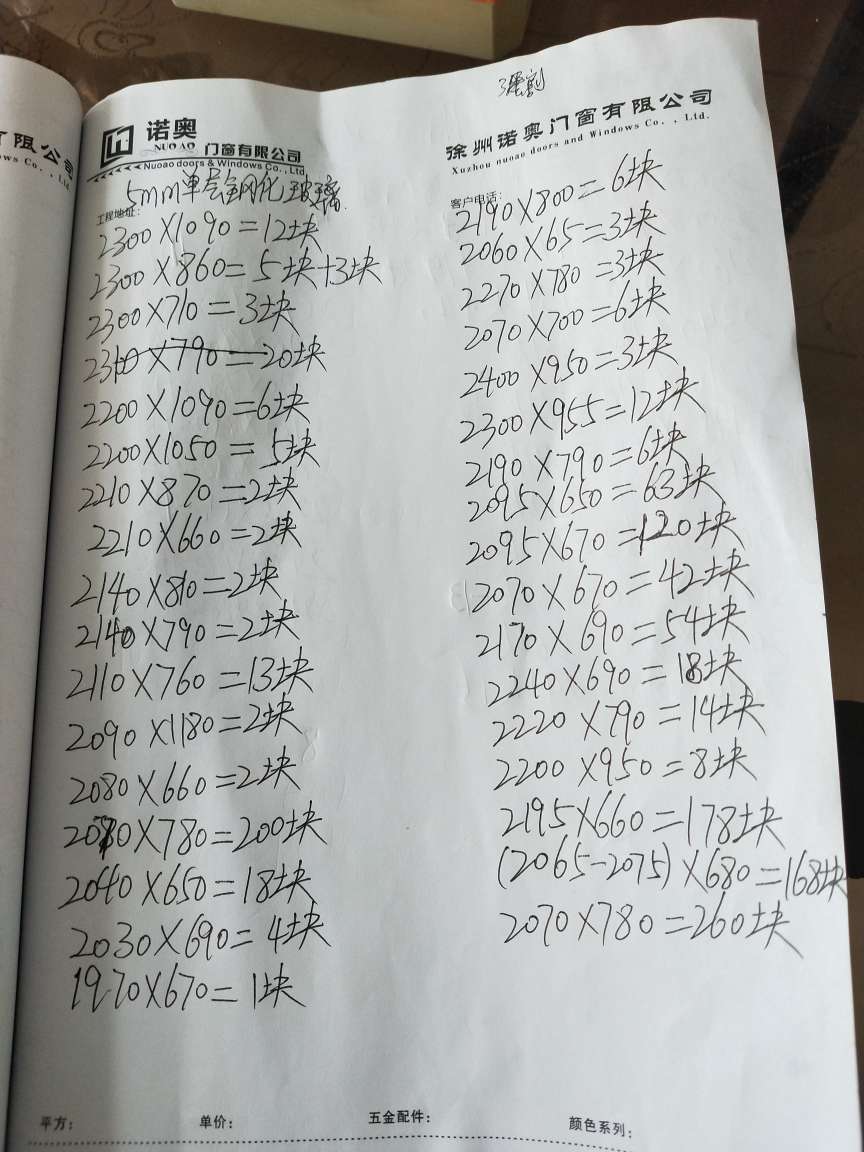 诺奥
NUOAO 门窗有限公司
Nuoao doors & Windows Co.,Ltd
徐州诺奥门窗有限公司
Xuzhou nuoao doors and Windows Co.,Ltd.
工程地址:
5mm单层钢化玻璃
2300×1090=12块
2300×860=5块+3块
2300×710=3块
2300×790=20块
2200×1090=6块
2200×1050=5块
2210×870=2块
2210×660=2块
2140×810=2块
2140×790=2块
2110×760=13块
2090×1180=2块
2080×660=2块
2080×780=200块
2040×650=18块
2030×690=4块
1970×670=1块
客户电话:
2190×800=6块
2060×65=3块
2270×780=3块
2070×700=6块
2400×950=3块
2300×955=12块
2190×790=6块
2095×650=63块
2095×670=120块
2070×670=42块
2170×690=54块
2240×690=18块
2220×790=14块
2200×950=8块
2195×660=178块
(2065-2075)×680=168块
2070×780=260块
平方: 单价: 五金配件: 颜色系列:
有限公司
ows Co.,Ltd.